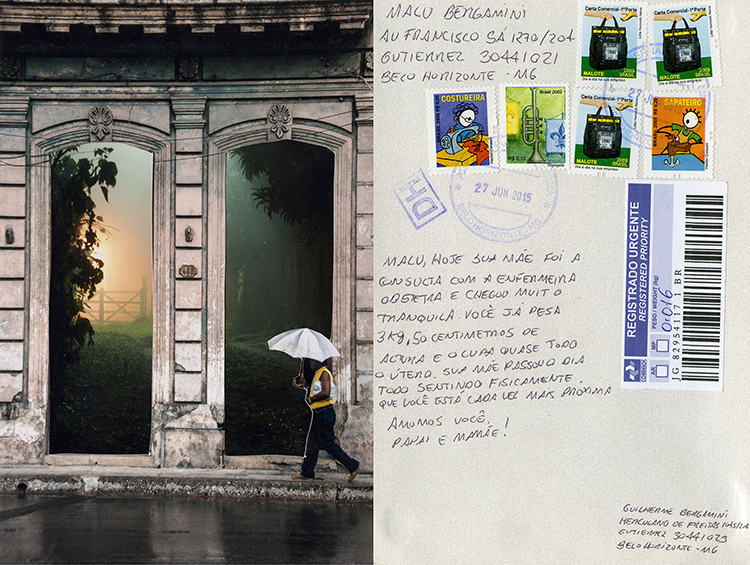 MALU BERGAMINI
AV FRANCISCO SÁ 1270/201
GUTIERREZ 30441021
BELO HORIZONTE - MG
Carta Comercial-1º Porte
MALOTE
BRASIL 2009
Dia a dia na sua empresa
Carta Comercial-1º Porte
MALOTE
BRASIL 2009
Dia a dia na sua empresa
COSTUREIRA
Brasil 2002
R$ 0,10
Carta Comercial-1º Porte
MALOTE
BRASIL 2009
Dia a dia na sua empresa
SAPATEIRO
DH
27 JUN 2015
BELO HORIZONTE - MG
REGISTRADO URGENTE
REGISTERED PRIORITY
PESO / WEIGHT (kg)
0,016
AR
MP
JG 82954117 1 BR
MALU, HOJE SUA MÃE FOI A
CONSULTA COM A ENFERMEIRA
OBSTETRA E CHEGOU MUITO
TRANQUILA. VOCÊ JÁ PESA
3Kg, 50 CENTIMETROS DE
ALTURA E OCUPA QUASE TODO
O ÚTERO. SUA MÃE PASSOU O DIA
TODO SENTINDO FISICAMENTE.
QUE VOCÊ ESTÁ CADA VEZ MAIS PROXIMA
AMAMOS VOCÊ.
PAPAI E MAMÃE!
GUILHERME BERGAMINI
HERCULANO DE FREITAS
GUTIERREZ 30441023
BELO HORIZONTE - MG